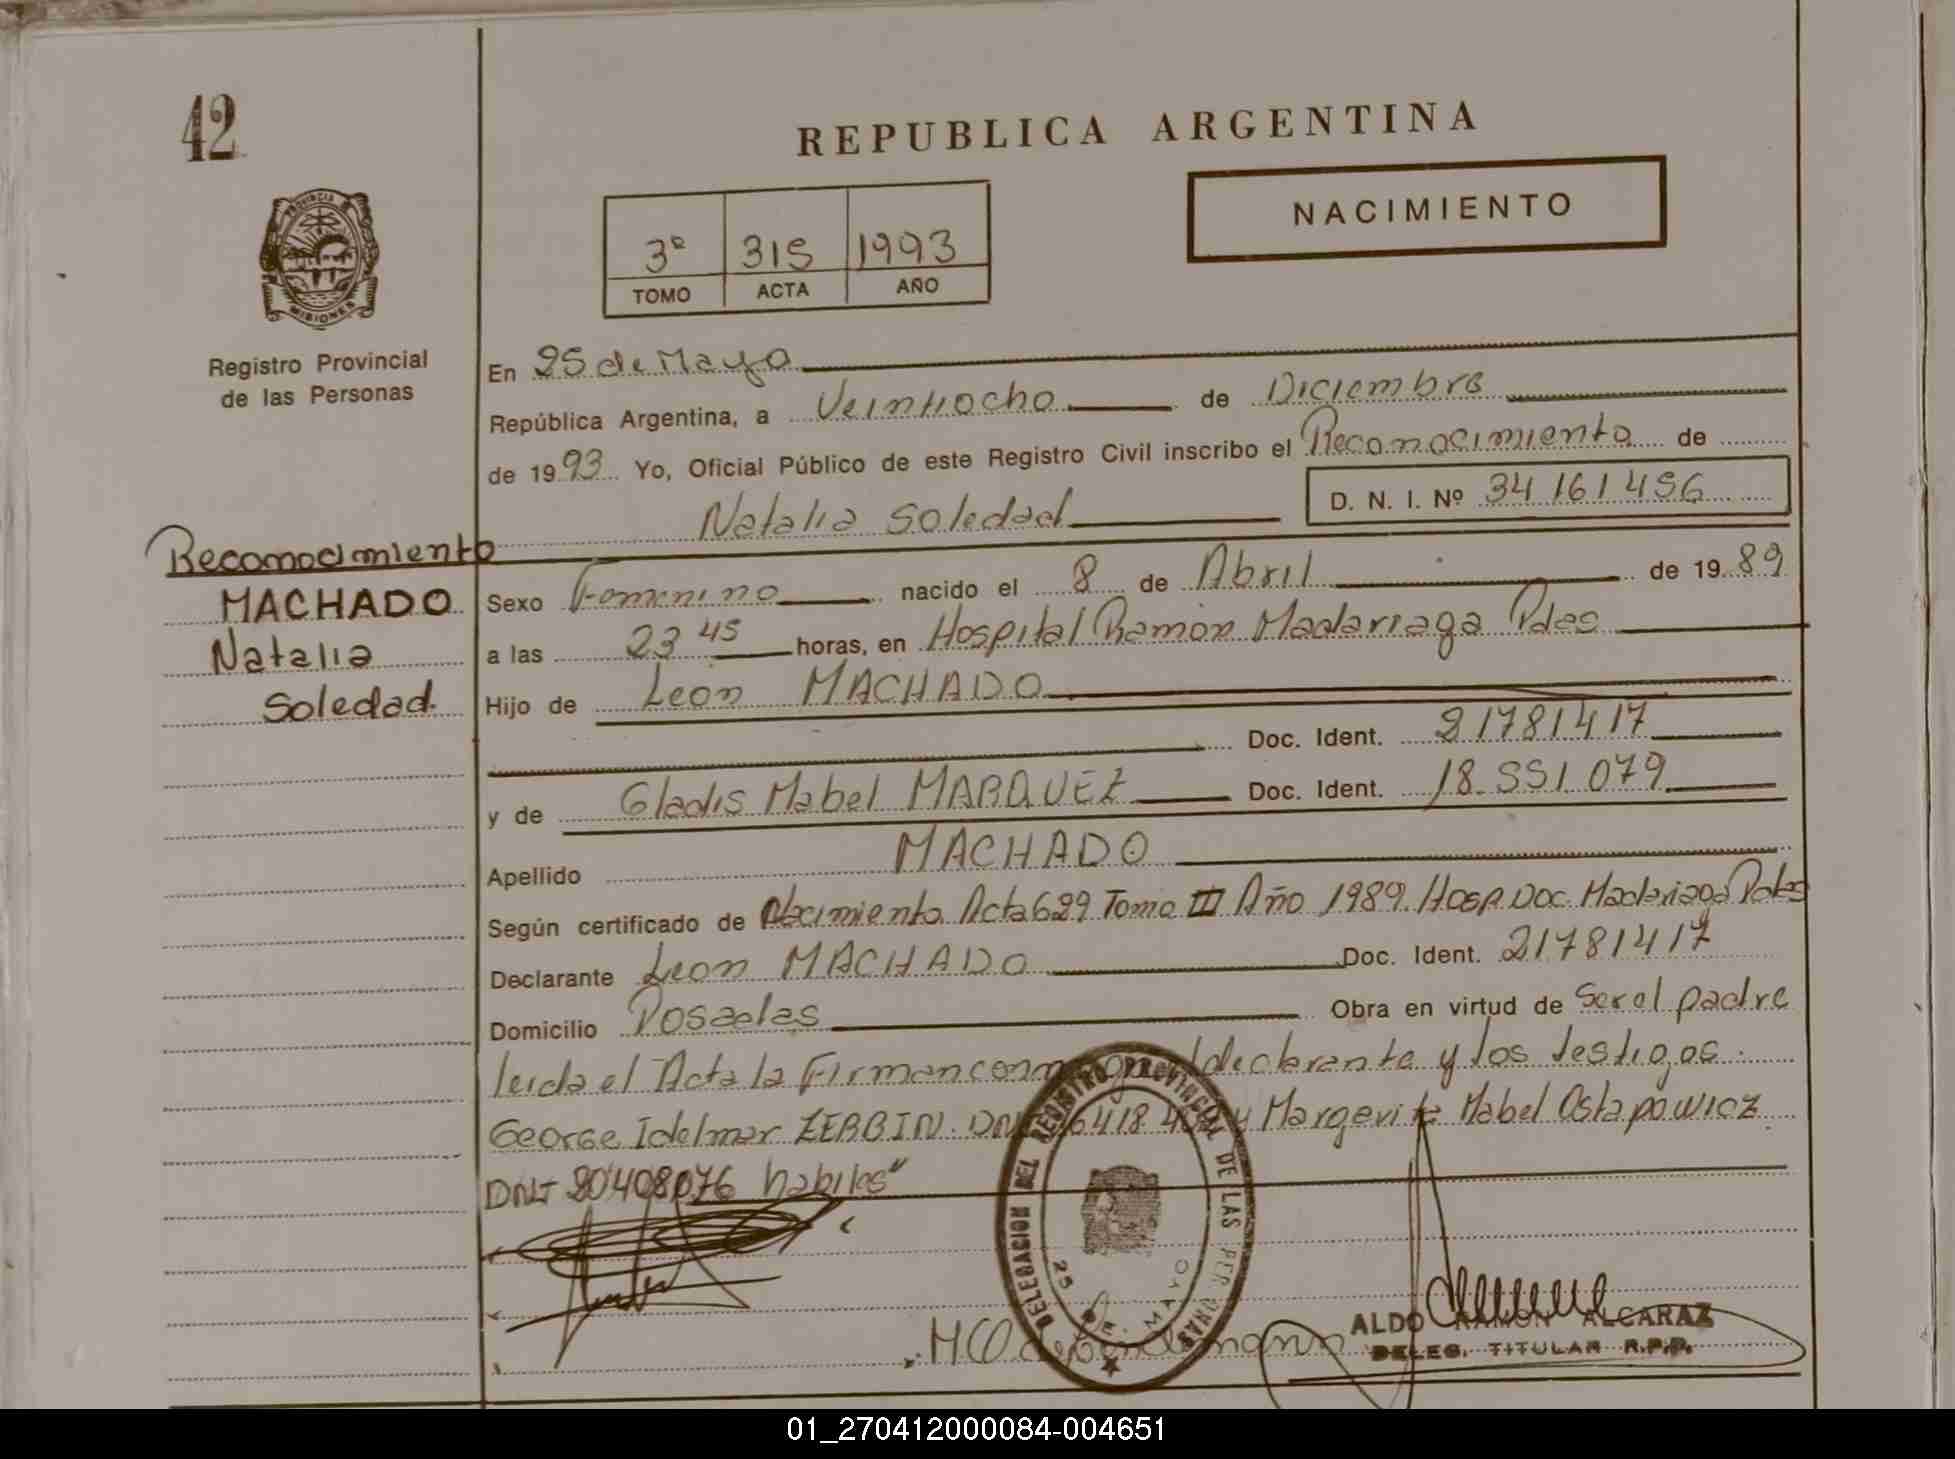 42
REPUBLICA ARGENTINA
NACIMIENTO
PROVINCIA DE
MISIONES
3º 315 1993
TOMO ACTA AÑO
Registro Provincial
de las Personas
En 25 de Mayo
República Argentina, a Veintiocho de Diciembre
de 1993 Yo, Oficial Público de este Registro Civil inscribo el Reconocimiento de
Natalia Soledad D. N. I. Nº 34 161 456
Reconocimiento
MACHADO
Natalia
Soledad.
Sexo Femenino nacido el 8 de Abril de 1989
a las 23 45 horas, en Hospital Ramón Madariaga Pdas
Hijo de Leon MACHADO
Doc. Ident. 21781417
y de Gladis Mabel MARQUEZ Doc. Ident. 18.551.079
Apellido MACHADO
Según certificado de Nacimiento Acta 629 Tomo III Año 1989. Hosp. Doc. Madariaga Pdas
Declarante Leon MACHADO Doc. Ident. 21781417
Domicilio Posadas Obra en virtud de Ser el padre
leida el Acta la Firman el declarante y los testigos
George Idelmar ZERBIN. DNI y Margarita Mabel Ostapowicz
DNI 20408076 habiles"
DELEGACION DEL REGISTRO PROVINCIAL DE LAS PERSONAS
25 DE MAYO
ALDO RAMON ALCARAZ
DELEG. TITULAR R.P.P.
01_270412000084-004651